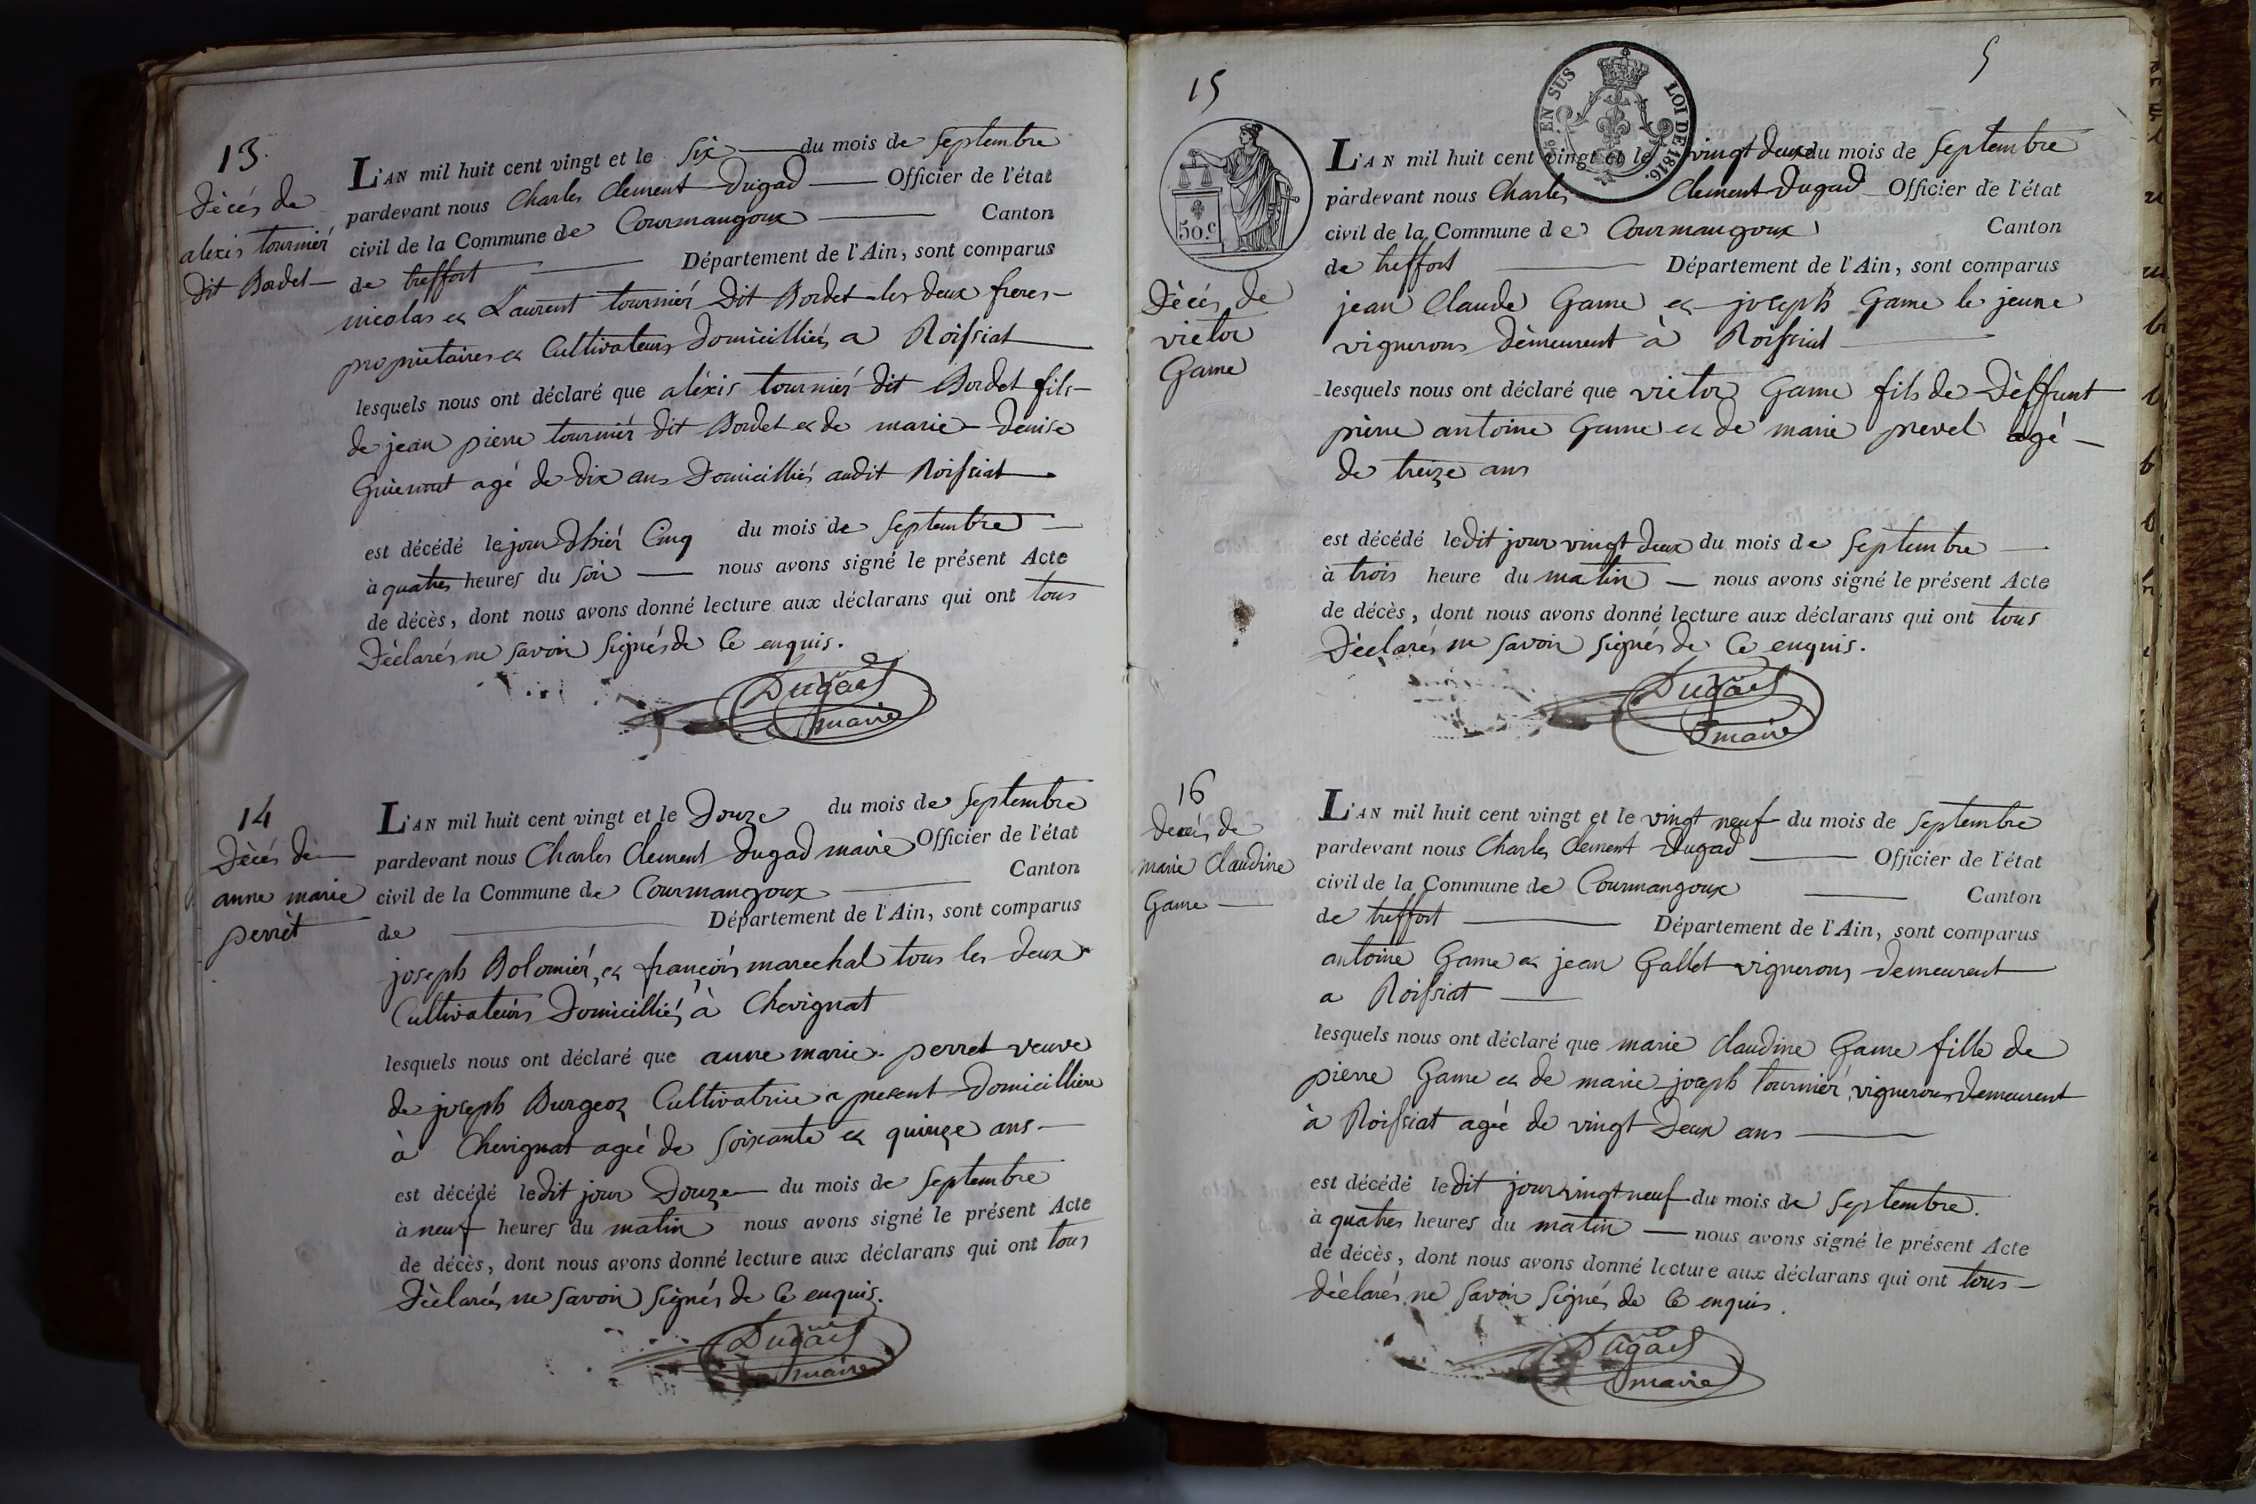 13.
Décés de
alexis tournier
dit Bordet
L'AN mil huit cent vingt et le Six du mois de Septembre
pardevant nous Charles Clement Dugad Officier de l'état
civil de la Commune de Courmangoux Canton
de treffort Département de l'Ain, sont comparus
nicolas et Laurent tournier Dit Bordet les deux freres
propriétaires et Cultivateurs Domicilliés a Roissiat
lesquels nous ont déclaré que aléxis tournier dit Bordet fils
de jean pierre tournier dit Bordet et de marie Denise
agé de dix ans Domicilliés audit Roissiat
est décédé le jour dhier Cinq du mois de Septembre
à quatres heures du Soir nous avons signé le présent Acte
de décès, dont nous avons donné lecture aux déclarans qui ont tous
Déclarés ne savoir Signés de Ce enquis.
Dugad
maire
14
Décés de
anne marie
perret
L'AN mil huit cent vingt et le Douze du mois de Septembre
pardevant nous Charles Clement Dugad maire Officier de l'état
civil de la Commune de Courmangoux Canton
de Département de l'Ain, sont comparus
joseph Bolomier, et françois marechal tous les deux
Cultivateurs Domicilliés à Chevignat
lesquels nous ont déclaré que anne marie perret veuve
de joseph Burgeoz Cultivatrice a present Domicilliere
à Chevignat ageé de Soixante et quinze ans
est décédé ledit jour Douze du mois de Septembre
à neuf heures du matin nous avons signé le présent Acte
de décès, dont nous avons donné lecture aux déclarans qui ont tous
Déclarés ne savoir Signés de Ce enquis.
Dugad
maire
5
15
EN SUS LOI DE 1816.
50.c
Décés de
victor
Game
L'AN mil huit cent vingt et le vingt deux du mois de Septembre
pardevant nous Charles Clement Dugad Officier de l'état
civil de la Commune de Courmangoux Canton
de treffort Département de l'Ain, sont comparus
jean Claude Game et joseph Game le jeune
vignerons démeurent à Roissiat
lesquels nous ont déclaré que victor Game fils de Déffunt
pierre antoine Game et de marie prevel agé
de treize ans
est décédé ledit jour vingt deux du mois de Septembre
à trois heure du matin nous avons signé le présent Acte
de décès, dont nous avons donné lecture aux déclarans qui ont tous
Déclarés ne savoir signés de Ce enquis.
Dugad
maire
16
Décés de
marie Claudine
Game
L'AN mil huit cent vingt et le vingt neuf du mois de Septembre
pardevant nous Charles Clement Dugad Officier de l'état
civil de la Commune de Courmangoux Canton
de treffort Département de l'Ain, sont comparus
antoine Game et jean Gallet vignerons demeurent
a Roissiat
lesquels nous ont déclaré que marie Claudine Game fille de
pierre Game et de marie joseph tournier, vignerons demeurent
à Roissiat ageé de vingt Deux ans
est décédé ledit jour vingt neuf du mois de Septembre.
à quatres heures du matin nous avons signé le présent Acte
de décès, dont nous avons donné lecture aux déclarans qui ont tous
déclarés ne savoir Signés de Ce enquis.
Dugad
maire